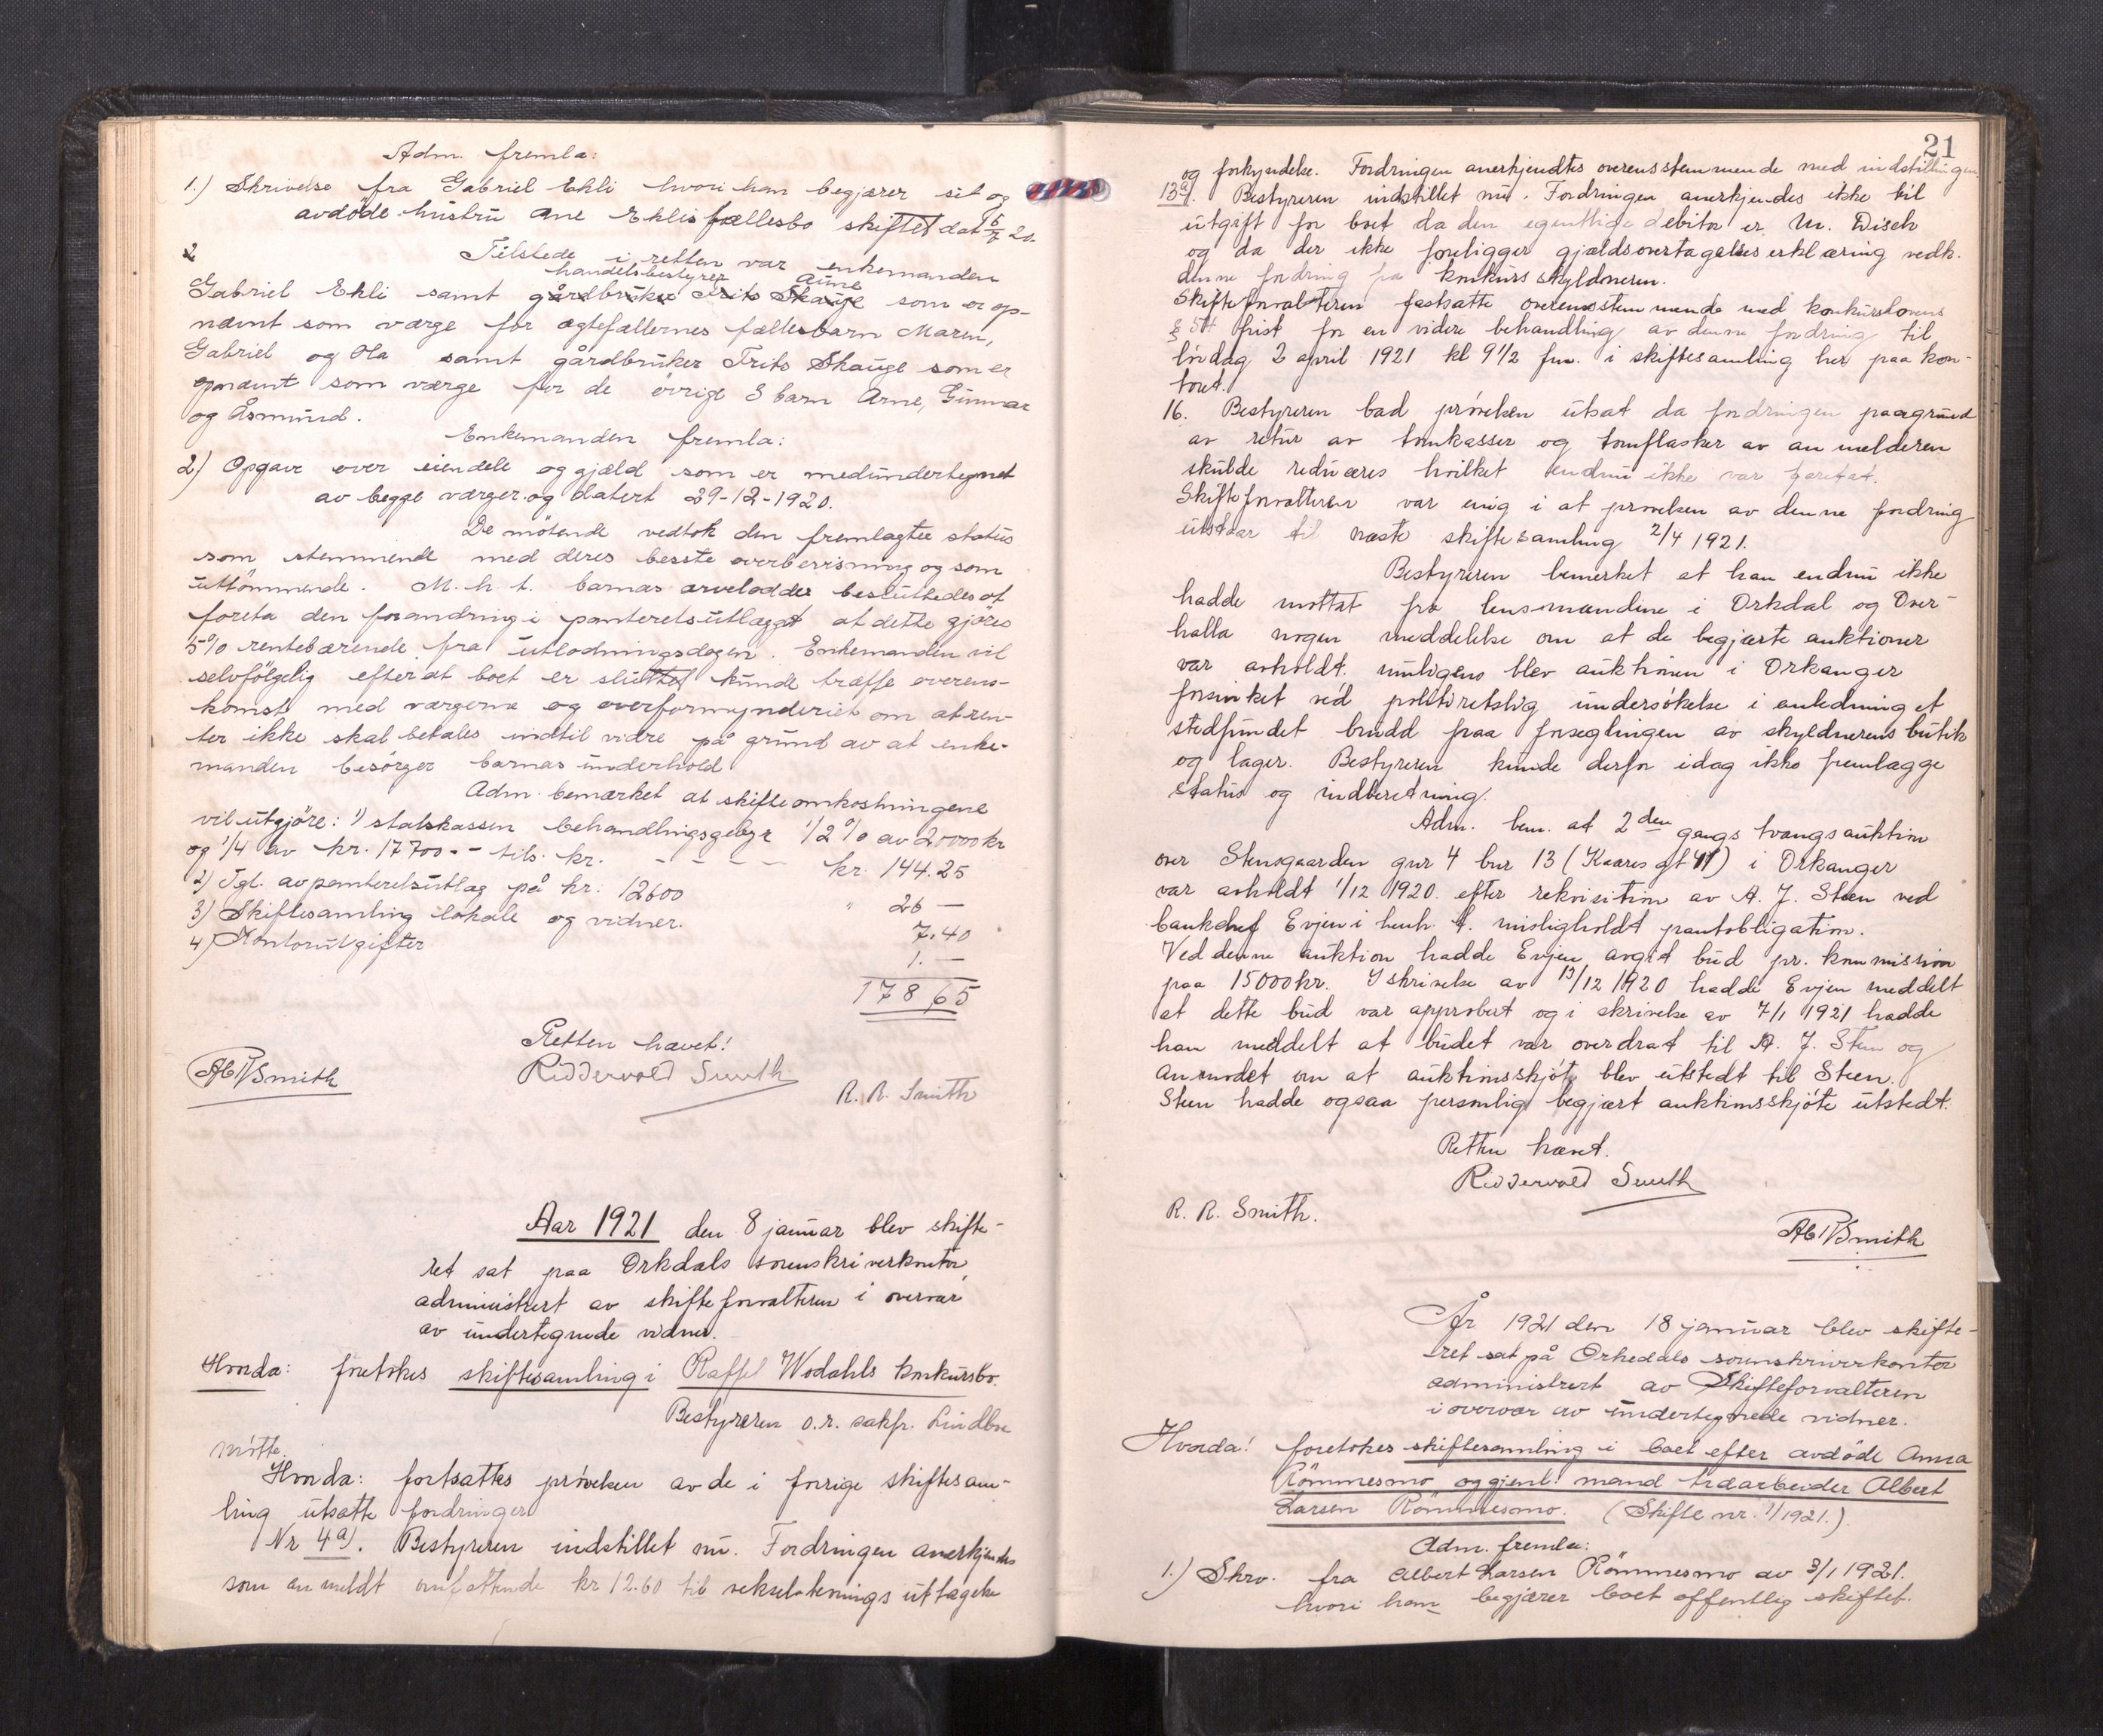 Adm. fremla:
1.) Skrivelse fra Gabriel Ekli hvori han begjærer sit og
avdöde hustru Ane Eklis fællesbo skiftet dat
2
Tilstede i retten var enkemanden
handelsbestyrer Aune
Gabriel Ekli samt gårdbruker Frits Skauge som er op-
nævnt som værge for ægtefællernes fællesbarn Maren,
Gabriel og Ola samt gårdbruker Frits Skauge som er
opnævnt som værge for de övrige 3 barn Arne, Gunnar
og Åsmund.
Enkemanden fremla:
2) Opgave over eiendele og gjæld som er medundertegnet
av begge værger og datert 29-12-1920.
De mötende vedtok den fremlagte status
som stemmende med deres besste overbevisning og som
uttömmende. M.h.t. barnas arvelodder besluttedes at
foreta den forandring i panteretsutlægget at dette gjöres
5% rentebærende fra utlodningsdagen. Enkemanden vil
selvfölgelig efter at boet er sluttet kunde træffe overens-
komst med værgerne og overformynderiet om at ren-
ter ikke skal betales indtil vidre på grund av at enke-
manden besörger barnas underhold
Adm. bemærket at skifteomkostningene
vil utgjöre: 1) statskassen behandlingsgebyr 1/2 % av 20000 kr
og 1/4 av kr. 17700 -- tils. kr. - - - - kr. 144.25
2) Tgl. av panteretsutlæg på kr. 12600 " 26 —
3) Skiftesamling lokale og vidner. 7.40
4) Kontorutgifter 1. —
178 65
Retten hævet!
Riddervold Smith
R. R. Smith
Aar 1921 den 8 januar blev skifte-
ret sat paa Orkdals sorenskriverkontor,
administrert av skifteforvalteren i overvær
av undertegnede vidner.
Hvorda: foretokes skiftesamling i Raffel Wodahls konkursbo.
Bestyreren o.r. sakfr. Lindboe
mötte.
Hvorda: fortsattes pröveken av de i forrige skiftesam-
ling utsatte fordringer
Nr 4a). Bestyreren indstillet nu. Fordringen anerkjendes
som anmeldt omfattende kr 12.60 til veksel uttagelse
21
og forkyndelse. Fordringen anerkjendtes overensstemmende med indstillingen.
13a). Bestyreren indstillet nu. Fordringen anerkjendes ikke til
utgift for boet da den egentlige debitor er M. Disch
og da der ikke foreligger gjældsovertagelseserklæring vedk.
denne fordring fra konkursskyldneren.
Skifteforvalteren fastsatte overensstemmende med konkurslovens
§ frist for en videre behandling av denne fordring til
lördag 2 april 1921 kl 9 1/2 fm. i skiftesamling her paa kon-
toret.
16. Bestyreren bad pröveken utsat da fordringen paagrund
av retur av tomkasser og tomflasker av anmelderen
skulde reduceres hvilket endnu ikke var foretat.
Skifteforvalteren var enig i at pröveken av denne fordring
utstaar til næste skiftesamling 2/4 1921.
Bestyreren bemerket at han endnu ikke
hadde mottat fra lensmændene i Orkdal og Over-
halla nogen meddelelse om at de begjærte auktioner
var avholdt. muligens blev auktionen i Orkanger
forsinket ved politiretslig undersökelse i anledning et
stedfundet brudd paa forseglingen av skyldnerens butik
og lager. Bestyreren kunde derfor idag ikke fremlægge
status og indberetning.
Adm. bem. at 2den gangs tvangsauktion
over Stensgaarden gnr 4 bnr 13 (Kaares gt 41) i Orkanger
var avholdt 1/12 1920. efter rekvisition av A. J. Steen ved
bankchef Evjen i henh. t. misligholdt pantobligation.
Ved denne auktion hadde Evjen avgit bud pr. kommission
paa 15000 kr. I skrivelse av 13/12 1920 hadde Evjen meddelt
at dette bud var approbert og i skrivelse av 7/1 1921 hadde
han meddelt at budet var overdrat til A. J. Steen og
anmodet om at auktionsskjöte blev utstedt til Steen.
Steen hadde ogsaa personlig begjært auktionsskjöte utstedt.
Retten hævet.
Riddervold Smith
R. R. Smith.
År 1921 den 18 januar blev skifte-
ret sat på Orkedals sorenskriverkontor
administrert av Skifteforvalteren
i overvær av undertegnede vidner.
Hvorda! foretokes skiftesamling i boet efter avdöde Anna
Römmesmo og gjenl. mand træarbeider Albert
Larsen Römmesmo. (Skifte nr. 1/1921.)
Adm. fremla:
1.) Skrv. fra Albert Larsen Römmesmo av 3/1 1921.
hvori han begjærer boet offentlig skiftet.